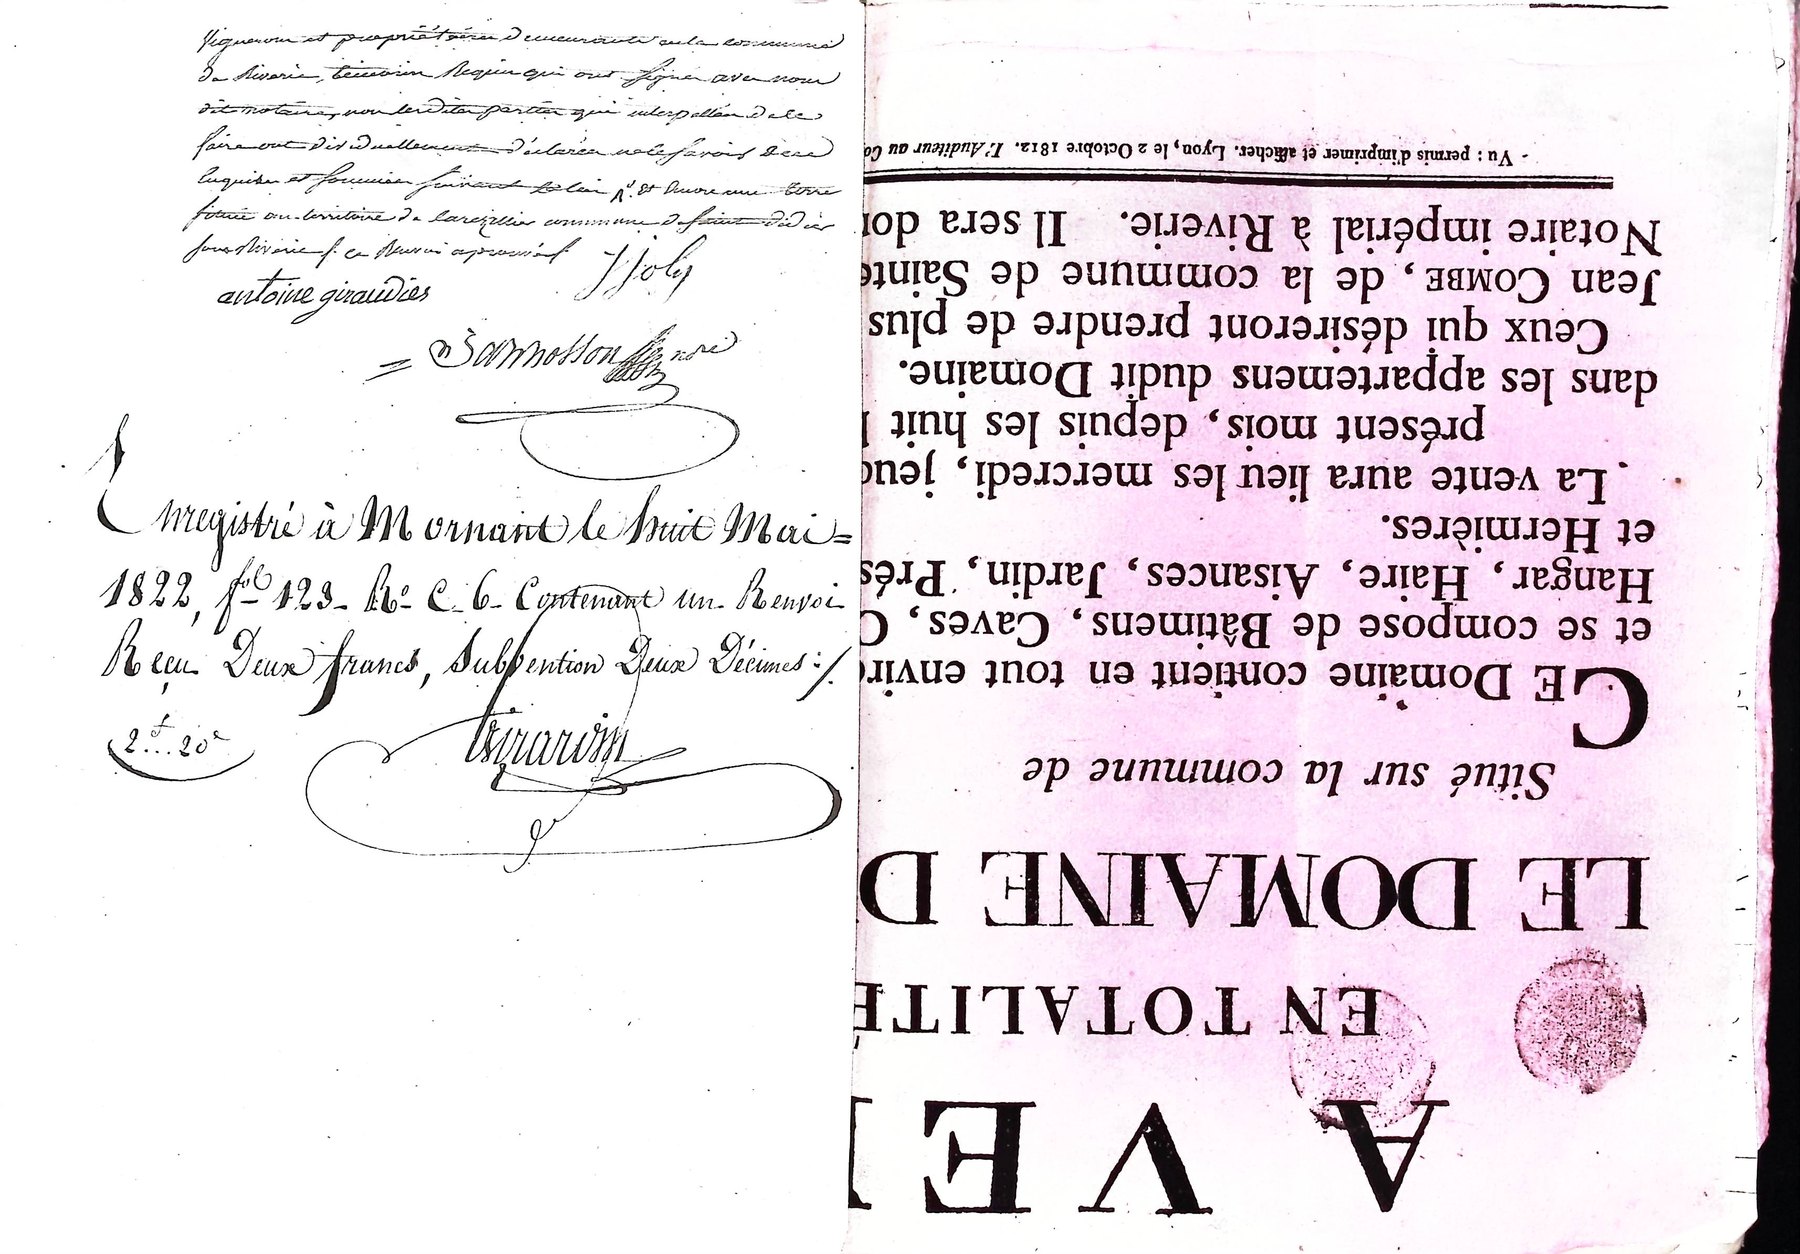 Vigneron et propriétaires demeurants en la commune
de Riverie, témoins Requis qui ont signé avec nous
dit notaire, non lesdites parties qui interpellées de le
faire ont individuellement déclaré ne le savoir de ce
enquises et sommées suivant la loi et encore une terre
située au territoire de commune de saint didier
sous Riverie f. ce Renvoi approuvé f
J Joly
antoine giraudier
nore
Enregistré à Mornant le huit Mai =
1822, fol 123 Ro C. 6 Contenant un Renvoi
Reçu Deux francs, Subvention Deux Décimes :/.
2f...20c
Girardin
A VE
EN TOTALITÉ
LE DOMAINE D
Situé sur la commune de
CE Domaine contient en tout envir
et se compose de Bâtimens, Caves, C
Hangar, Haire, Aisances, Jardin, Prés
et Hermières.
La vente aura lieu les mercredi, jeud
présent mois, depuis les huit
dans les appartemens dudit Domaine.
Ceux qui désireront prendre de plus
Jean COMBE, de la commune de Sainte
Notaire impérial à Riverie. Il sera don
Vu : permis d'imprimer et afficher. Lyon, le 2 Octobre 1812. L'Auditeur au Co